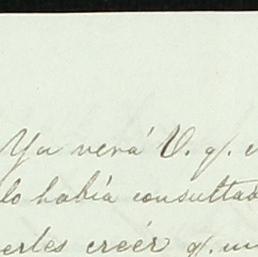 Ya verá V. q.
lo había consultad
erles creér q. un